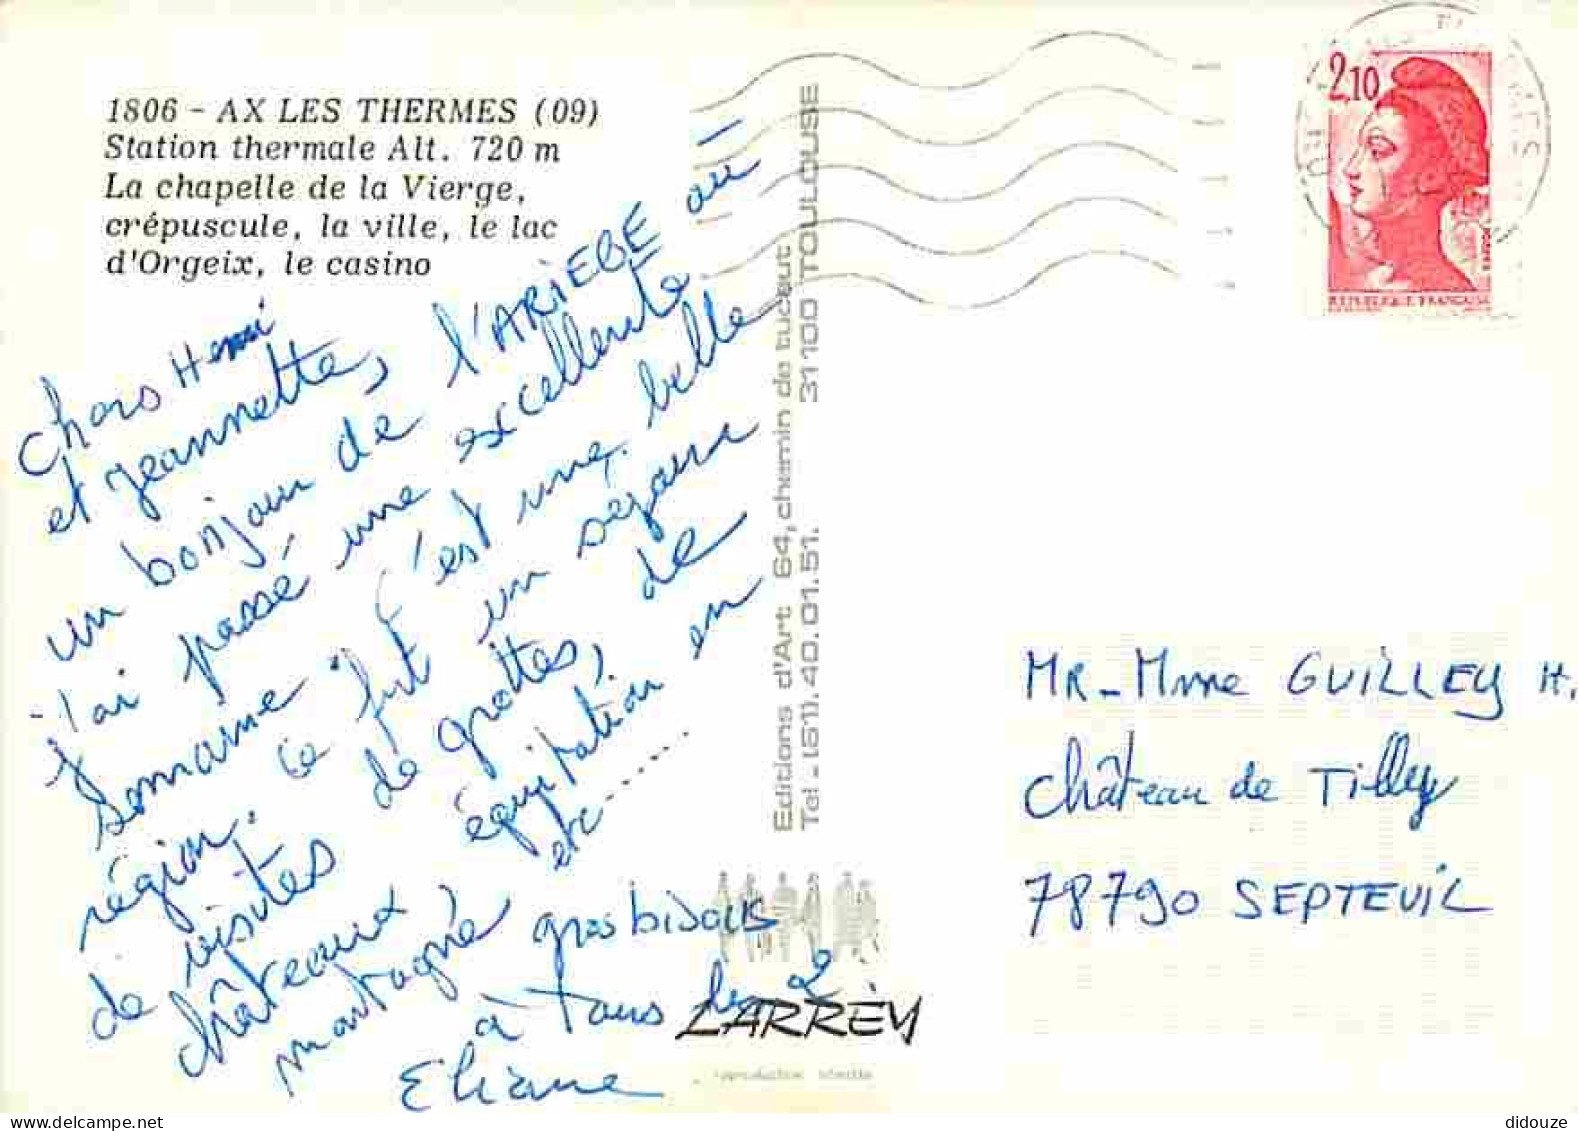 1806 - AX LES THERMES (09)
Station thermale Alt. 720 m
La chapelle de la Vierge,
crépuscule, la ville, le lac
d'Orgeix, le casino
Chers Henri
et Jeannette,
un bonjour de l'ARIEGE où
j'ai passé une excellente
semaine. c'est une belle
région. ce fut un séjour
de visites de grottes, de
châteaux, équitation en
montagne etc......
gros bisous
à tous les 2
Eliane
Editions d'Art 64, chemin de tucaut
Tel - (61). 40.01.51. 31100 TOULOUSE
LARREY
reproduction interdite
2,10
REPUBLIQUE FRANÇAISE
MR - Mme GUILLEY H.
Château de Tilly
78790 SEPTEUIL
didouze